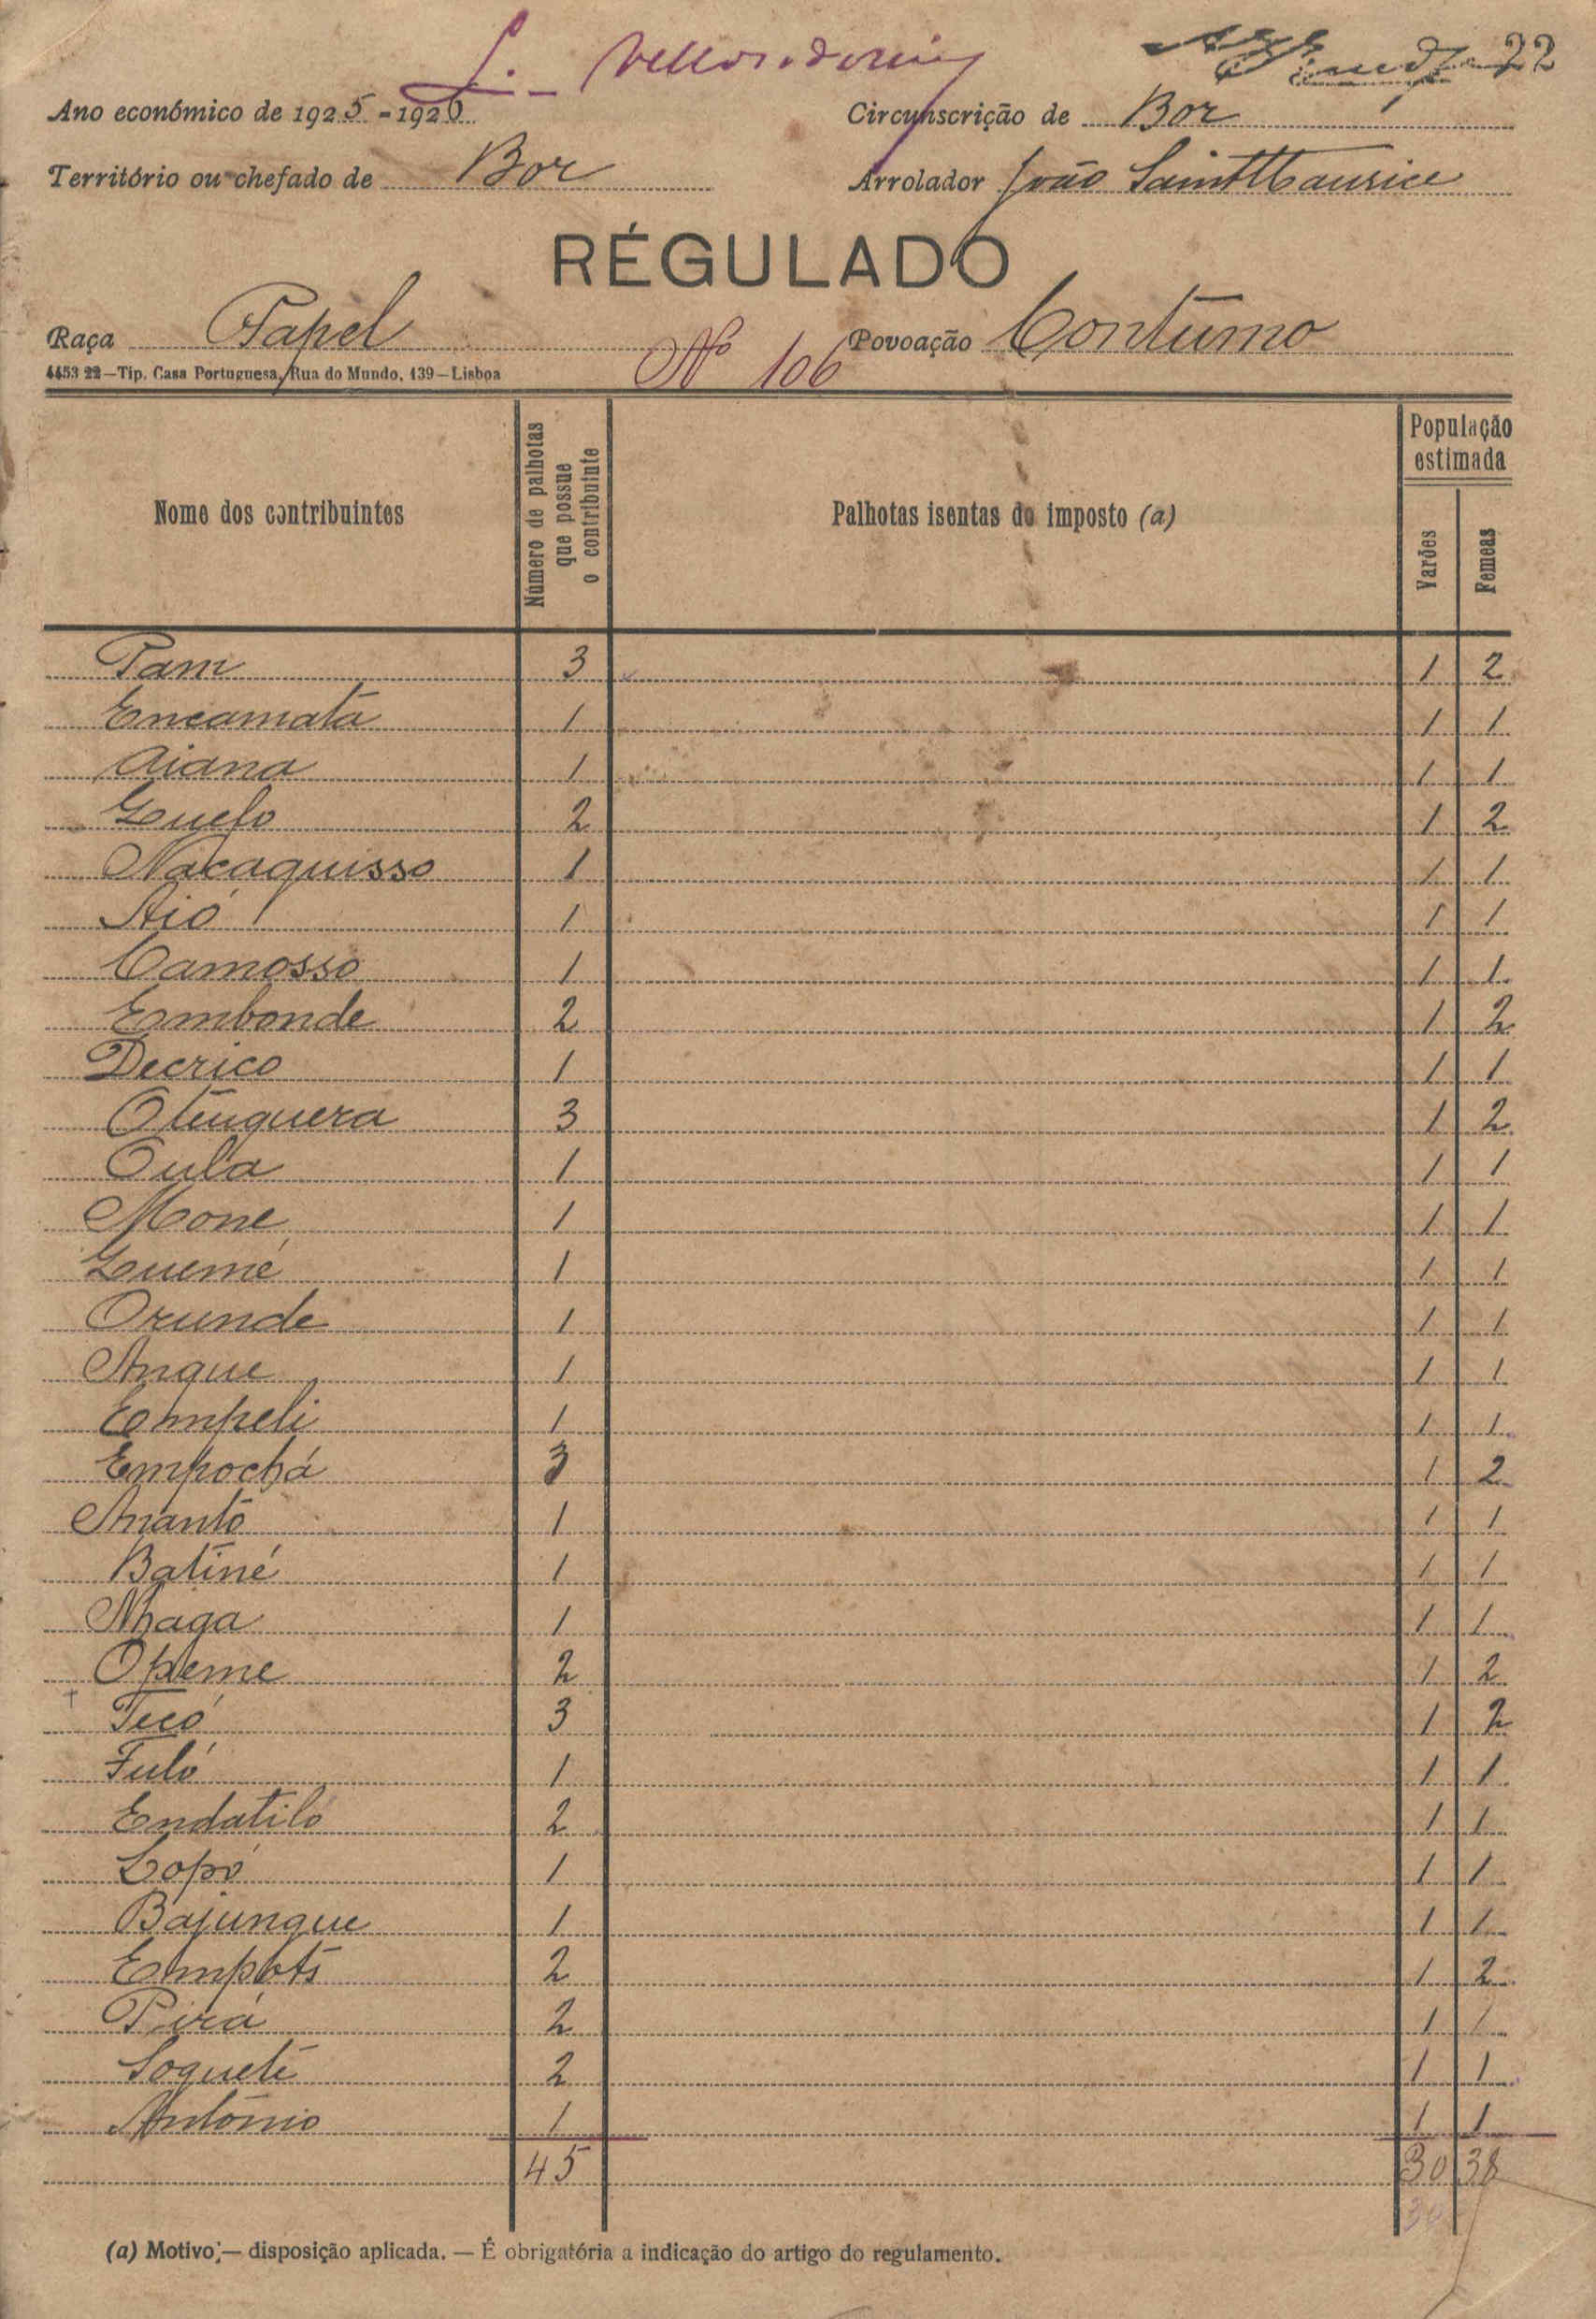 22
Ano económico de 1925-1926
Circunscrição de Bor
Território ou chefado de Bor
Arrolador João Saint Maurice
RÉGULADO
Raça Papel
Nº 106
Povoação Contumo
4453 22—Tip. Casa Portuguesa, Rua do Mundo, 139—Lisboa
Nome dos contribuintes
Número de palhotas que possue o contribuinte
Palhotas isentas do imposto (a)
População estimada
Varões
Femeas
Pam 3 1 2
Encamatá 1 1 1
Aiana 1 1 1
Guefo 2 1 2
Nacaquisso 1 1 1
Aió 1 1 1
Camosso 1 1 1
Embonde 2 1 2
Decrico 1 1 1
Otenquera 3 1 2
Oula 1 1 1
Mone 1 1 1
Luemé 1 1 1
Orunde 1 1 1
Anque 1 1 1
Empeli 1 1 1
Empochá 3 1 2
Anantó 1 1 1
Batiné 1 1 1
Nhaga 1 1 1
Opeme 2 1 2
Tecó 3 1 2
Fuló 1 1 1
Endatiló 2 1 1
Lopó 1 1 1
Bajunque 1 1 1
Empots 2 1 2
Pirá 2 1 1
Soqueté 2 1 1
António 1 1 1
45 30 38
30
(a) Motivo;— disposição aplicada. — É obrigatória a indicação do artigo do regulamento.